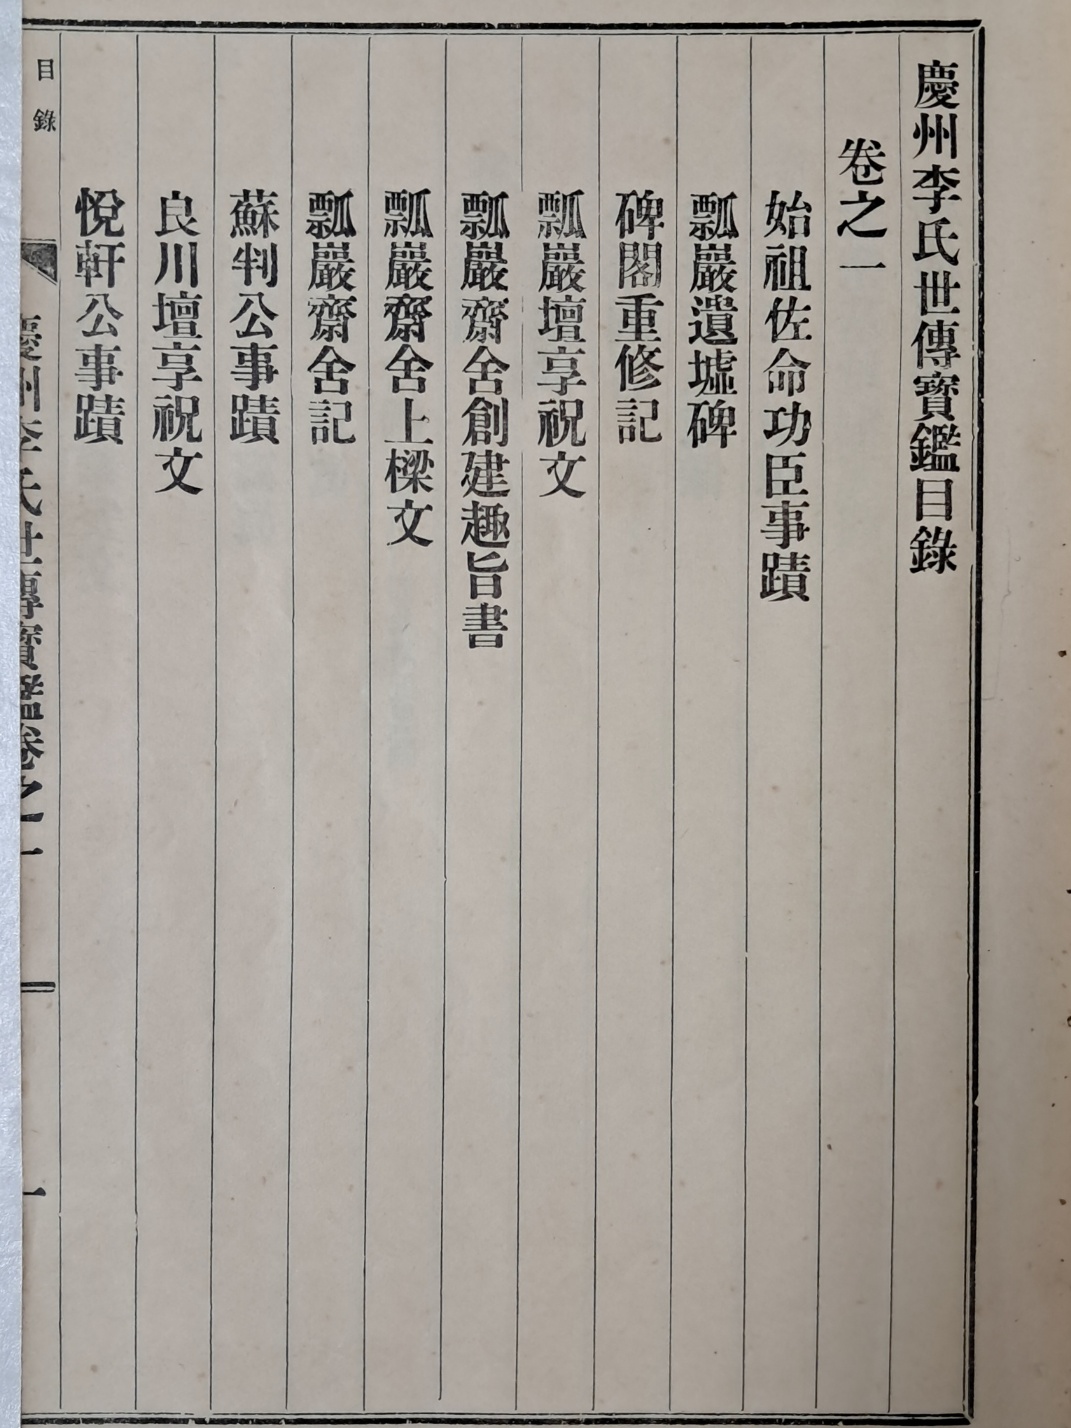 慶州李氏世傳寶鑑目錄
卷之一
始祖佐命功臣事蹟
瓢巖遺墟碑
碑閣重修記
瓢巖壇享祝文
瓢巖齋舍創建趣旨書
瓢巖齋舍上樑文
瓢巖齋舍記
蘇判公事蹟
良川壇享祝文
悅軒公事蹟
目錄
慶州李氏世傳寶鑑卷之一
一